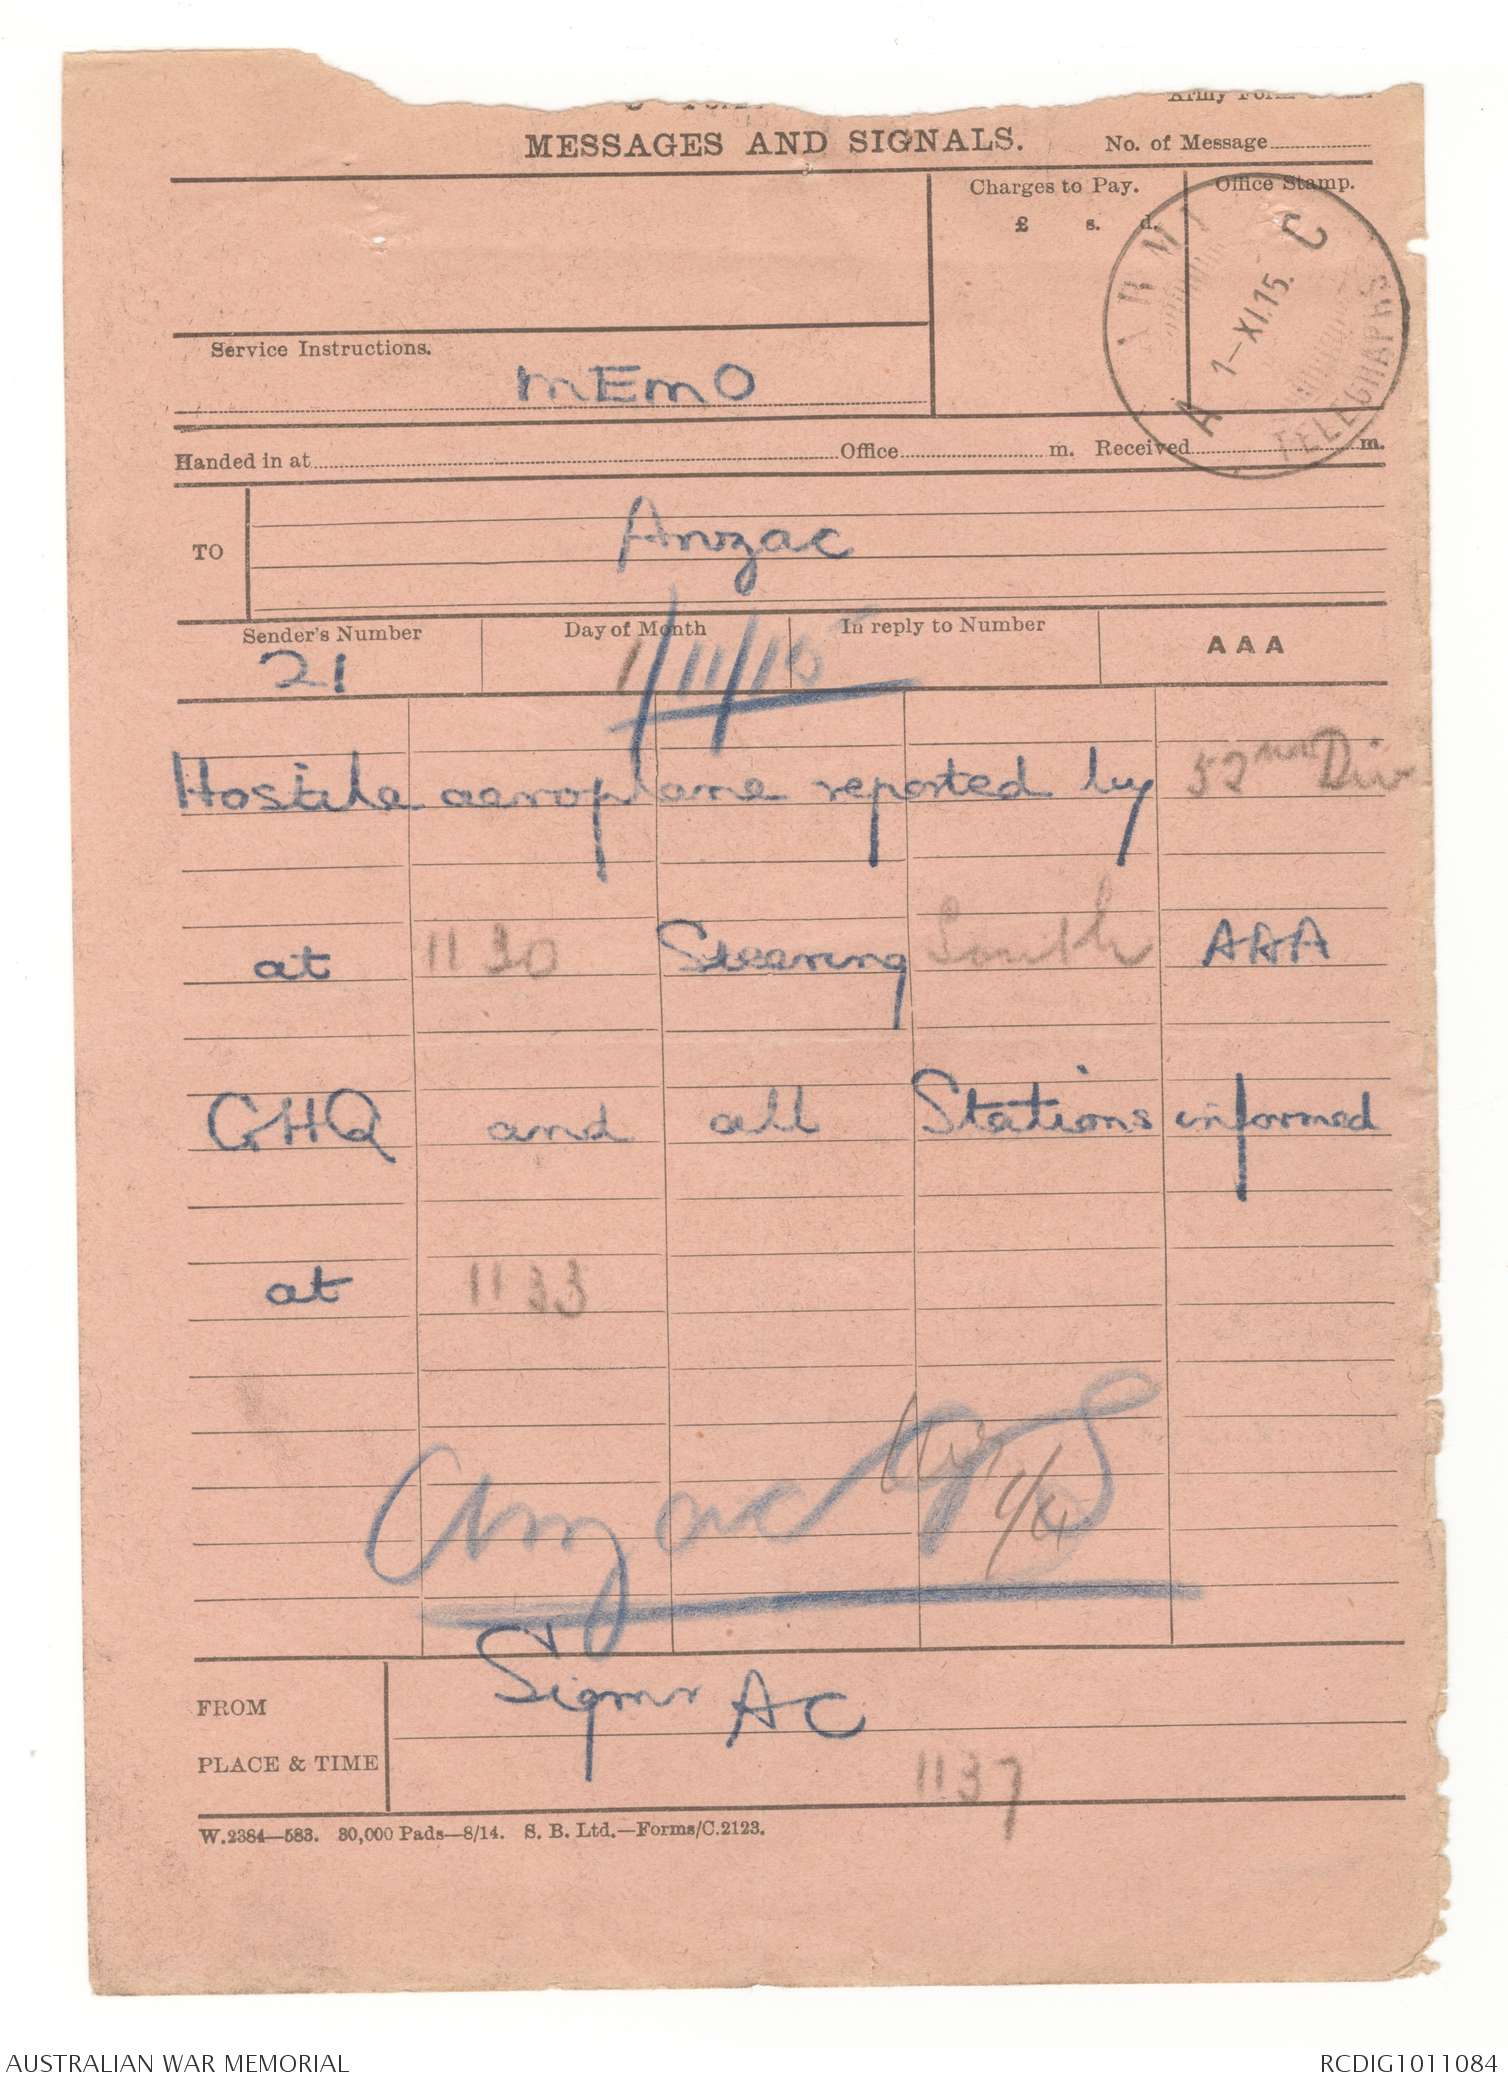 Army Form
MESSAGES AND SIGNALS.
No. of Message
Charges to Pay.
£ s. d.
Office Stamp.
ARMY TELEGRAPHS
A 1-XI.15. C
Service Instructions.
MEMO
Handed in at Office m. Received m.
TO
Anzac
Sender's Number
Day of Month
In reply to Number
AAA
21
1/11/15
Hostile aeroplane reported by 52nd Div
at 1130 Steering South AAA
GHQ and all Stations informed
at 1133
Anzac GS
1/11
FROM
Signr AC
PLACE & TIME
1137
W.2384—583. 30,000 Pads—8/14. S. B. Ltd.—Forms/C.2123.
AUSTRALIAN WAR MEMORIAL
RCDIG1011084